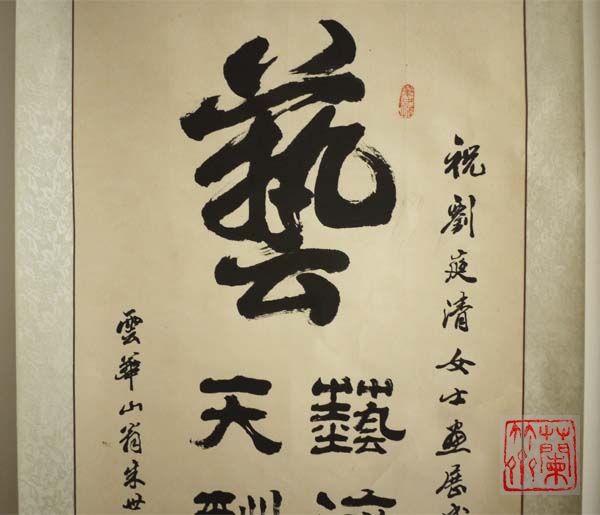 藝
祝劉庭清女士畫展成
藝
天
雲華山翁朱世
蘭